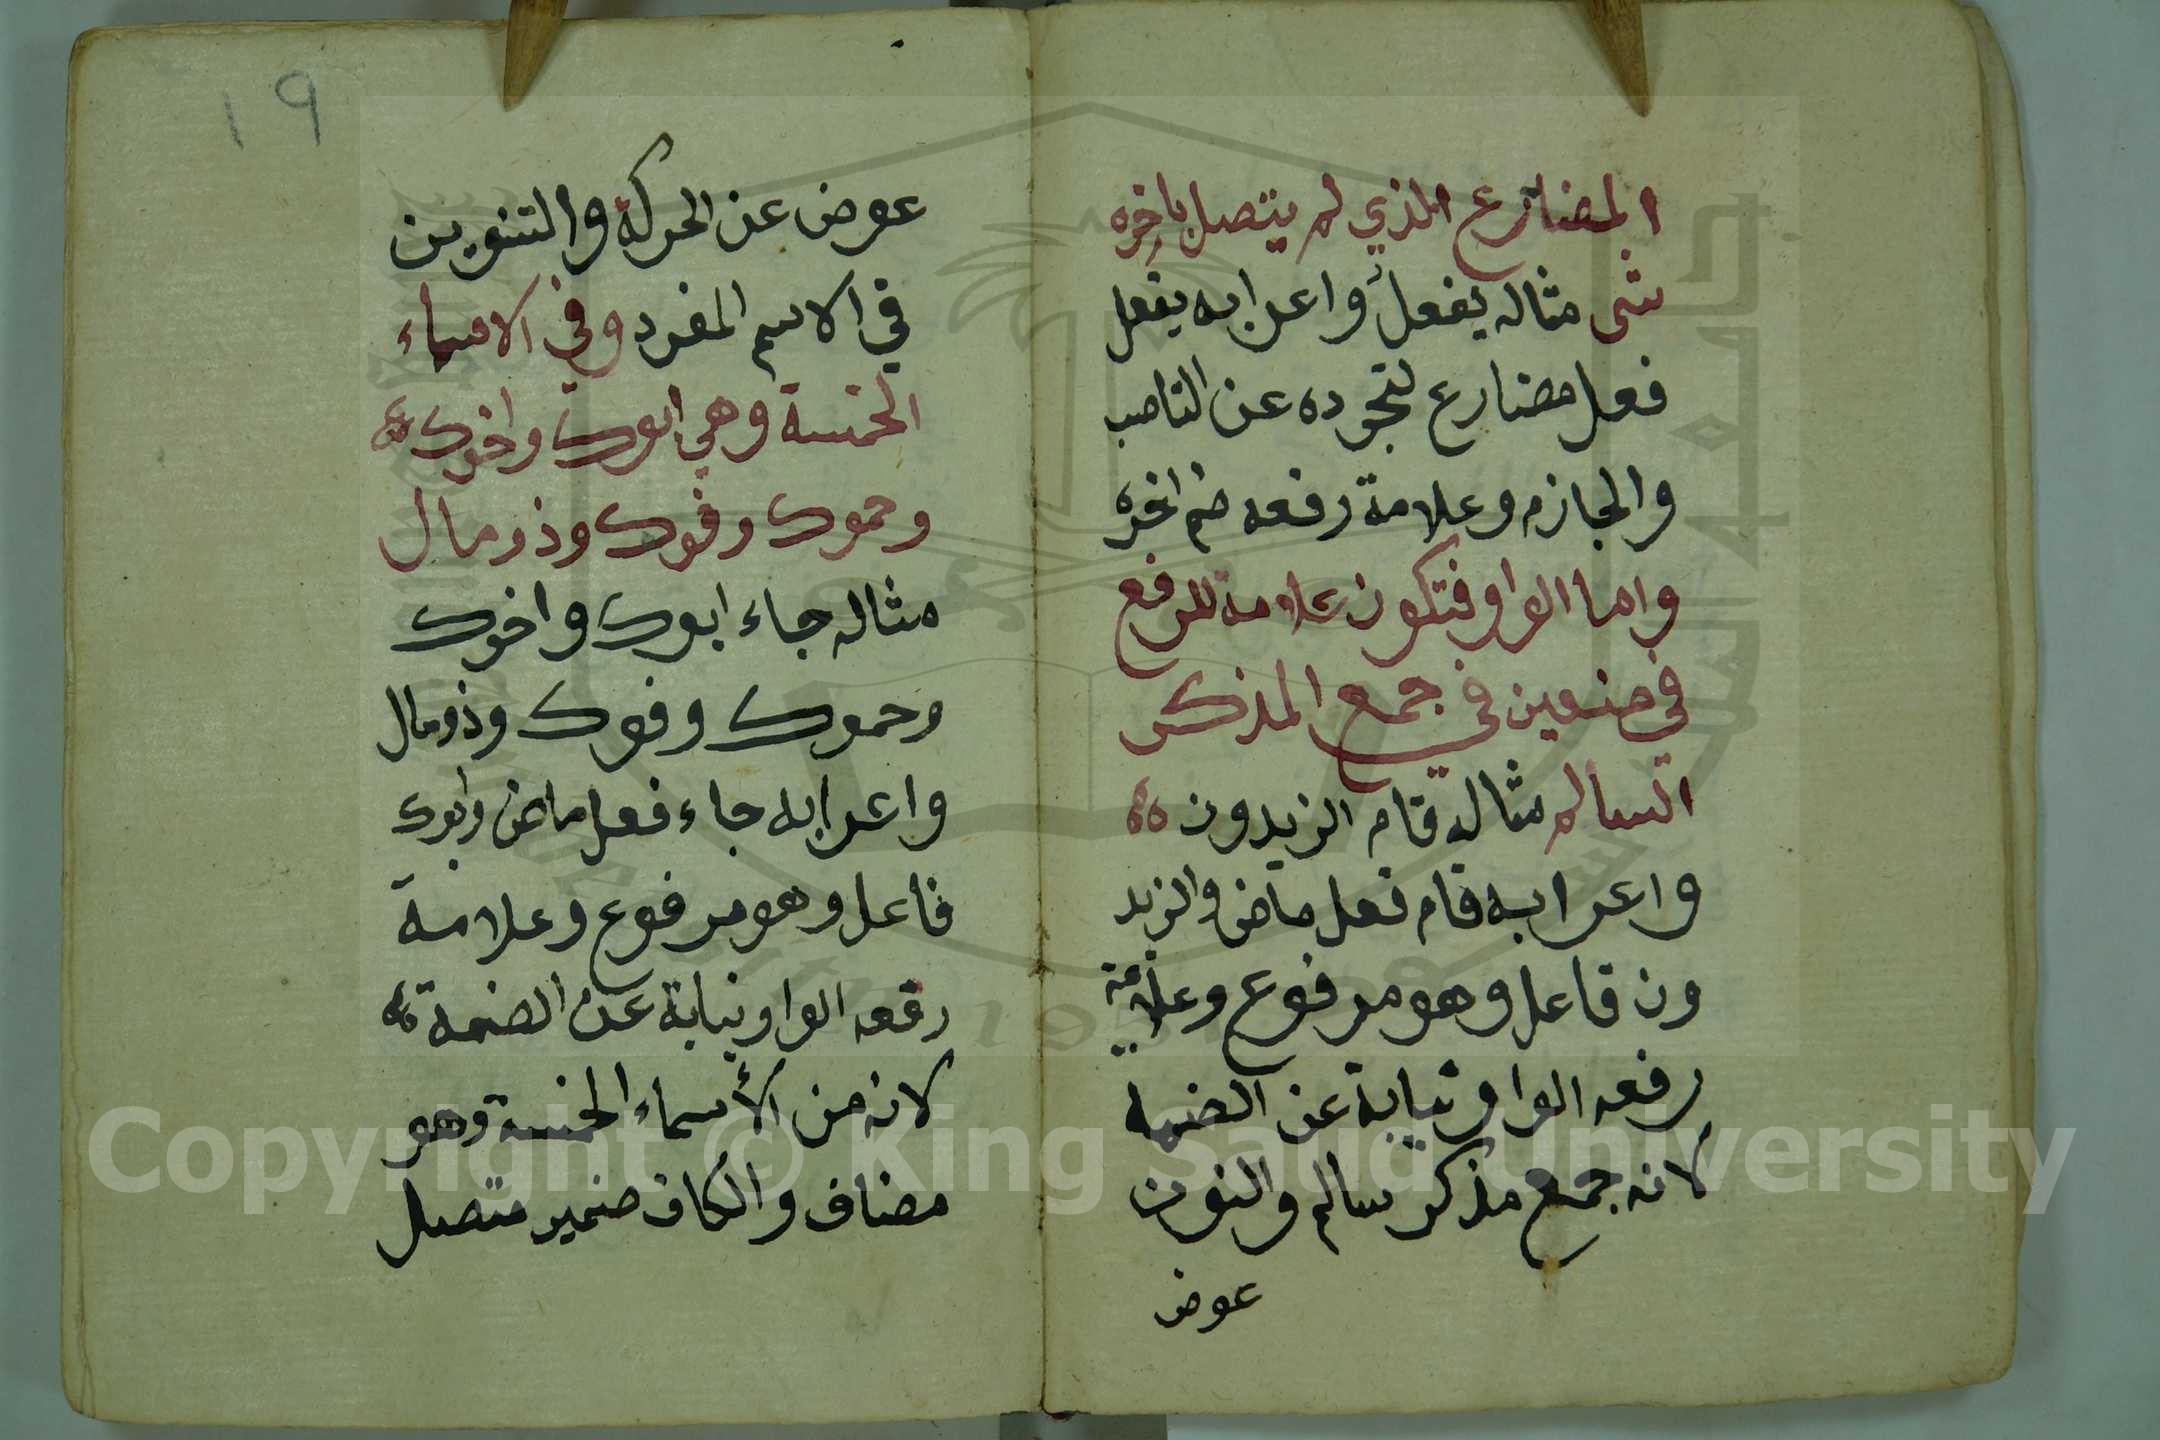 المضارع الذي لم يتصل باخره
شى مثاله يفعل واعرابه يفعل
فعل مضارع لتجرده عن الناصب
والجازم وعلامة رفعه ضم اخره
واما الواو فتكون علامة للرفع
في ضعين في جمع المذكر
السالم مثاله قام الزيدون
واعرابه قام فعل ماض والزيد
ون فاعل وهو مرفوع وعلامة
رفعه الواو نيابة عن الضمه
لانه جمع مذكر سالم والنون
عوض
١٩
عوض عن الحركة والتنوين
في الاسم المفرد وفي الاسماء
الخمسة وهي ابوك واخوك
وحموك وفوك وذو مال
مثاله جاء ابوك واخوك
وحموك وفوك وذو مال
واعرابه جاء فعل ماض وابوك
فاعل وهو مرفوع وعلامة
رفعه الواو نيابة عن الضمة
لانه من الأسماء الخمسة وهو
مضاف والكاف ضمير متصل
Copyright © King Saud University